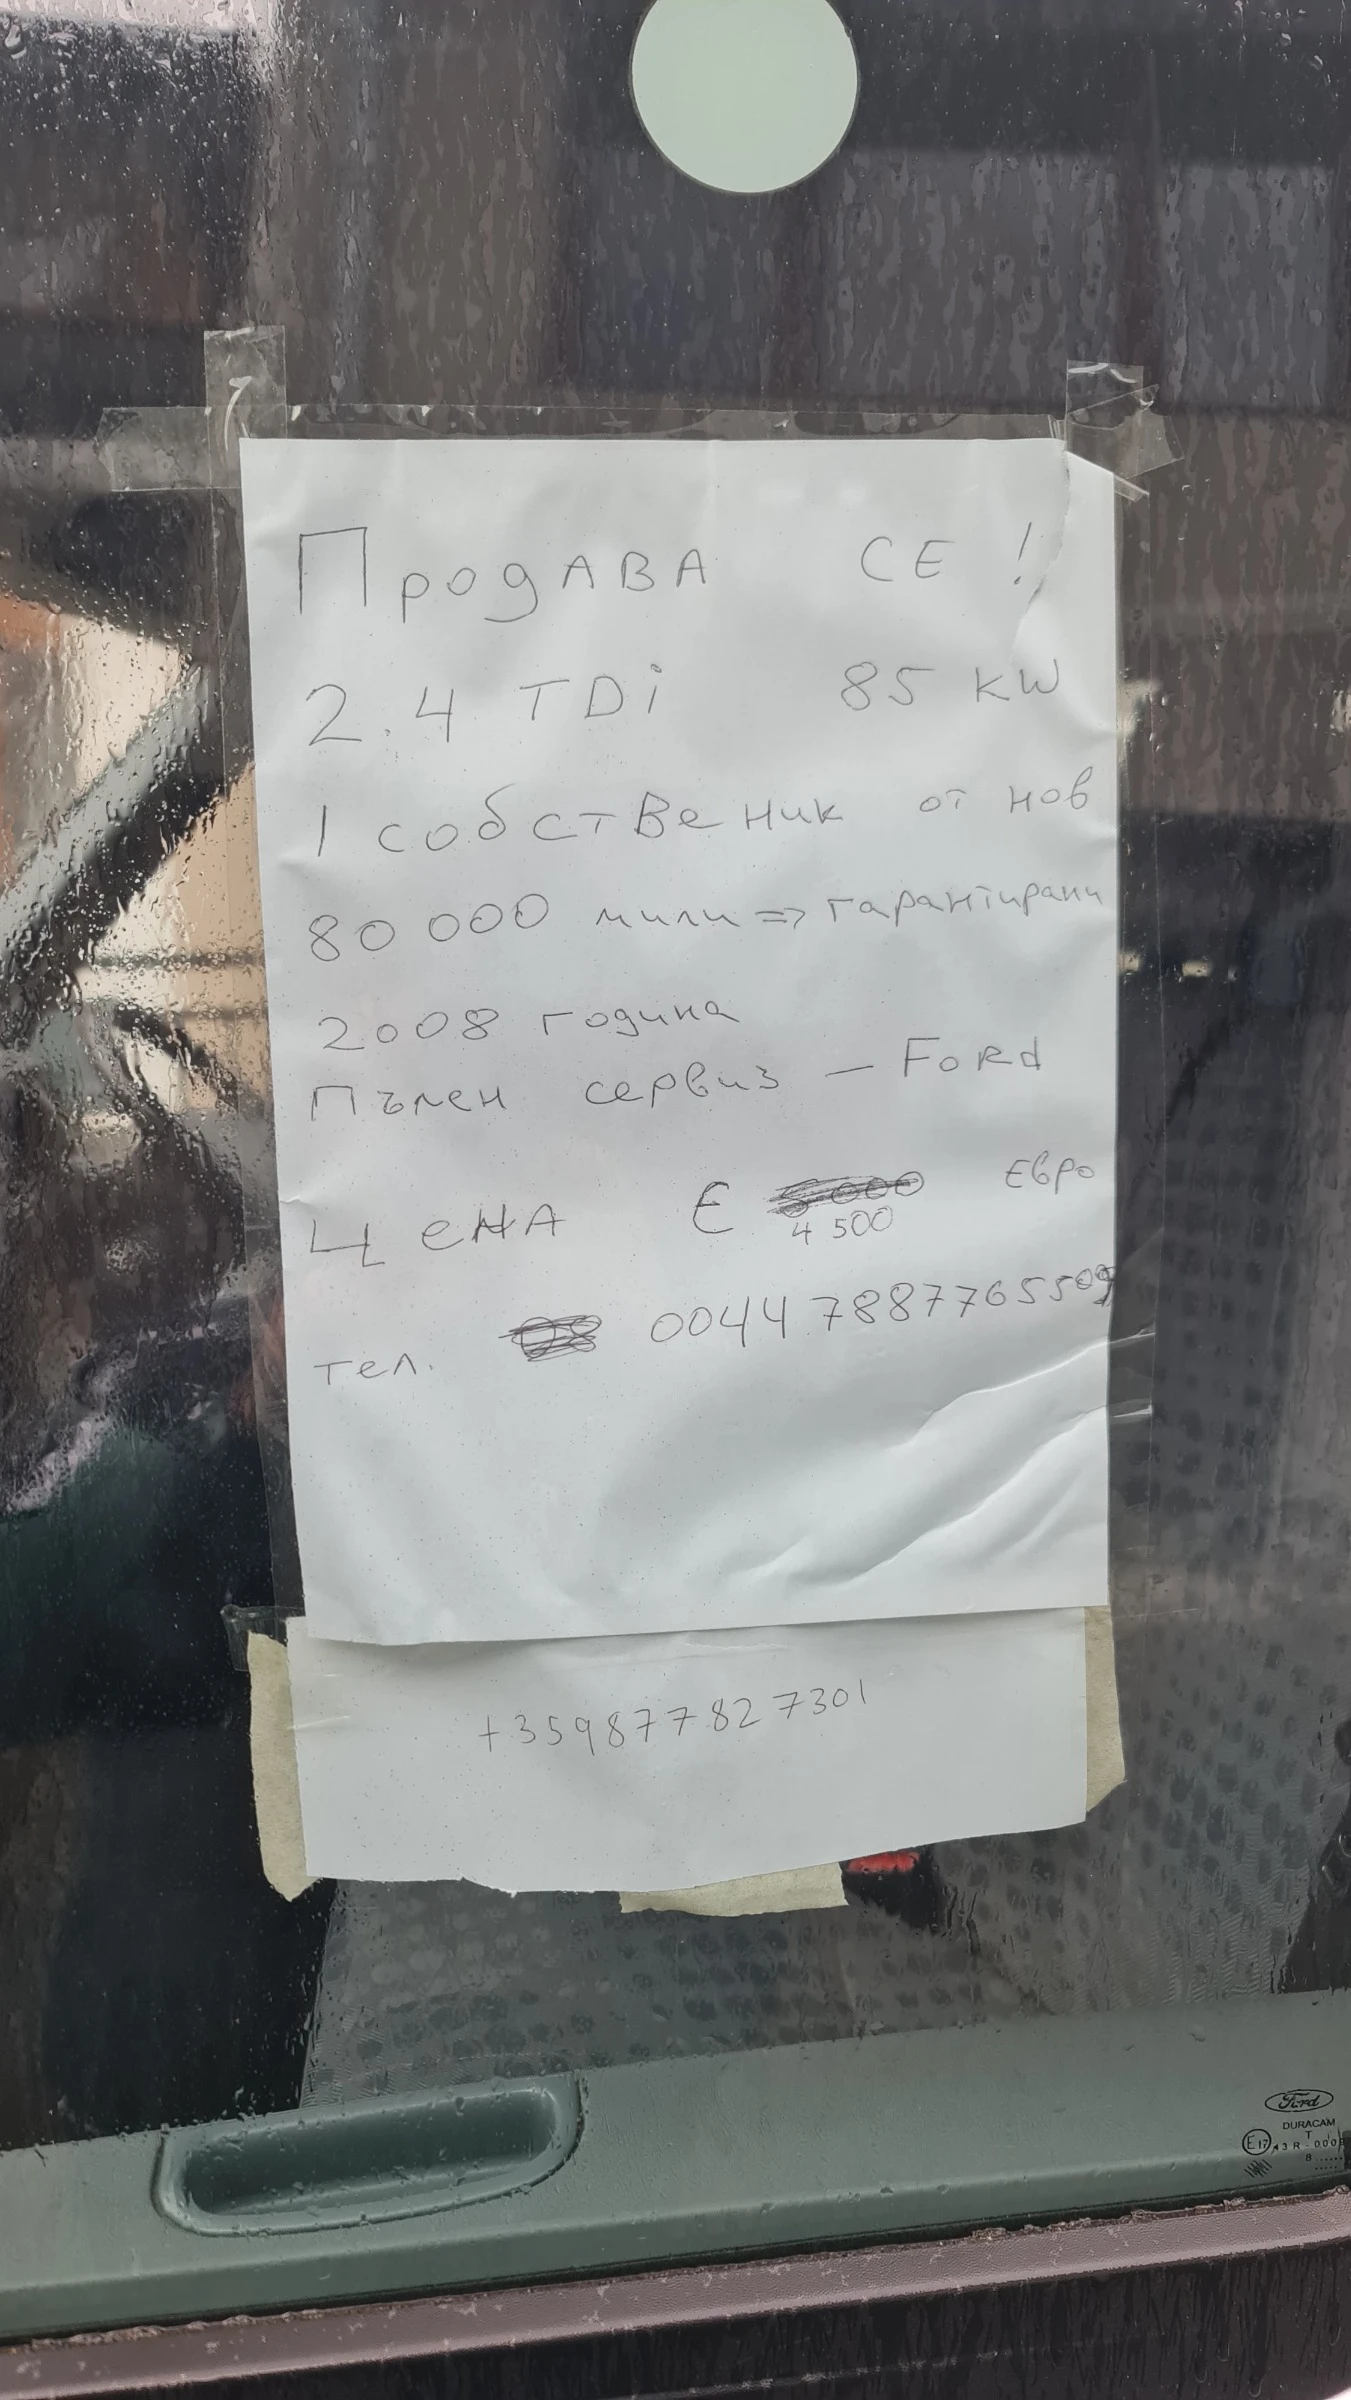 ПРодАВА СЕ !
2.4 TDi 85 KW
1 собственик от нов
80 000 мили => гарантирани
2008 година
Пълен сервиз – FoRd
ЦеНА € 5000 Евро
4 500
тел. 08 00447887765509
+359877827301
Ford
DURACAM
T
E17 43R-000
8